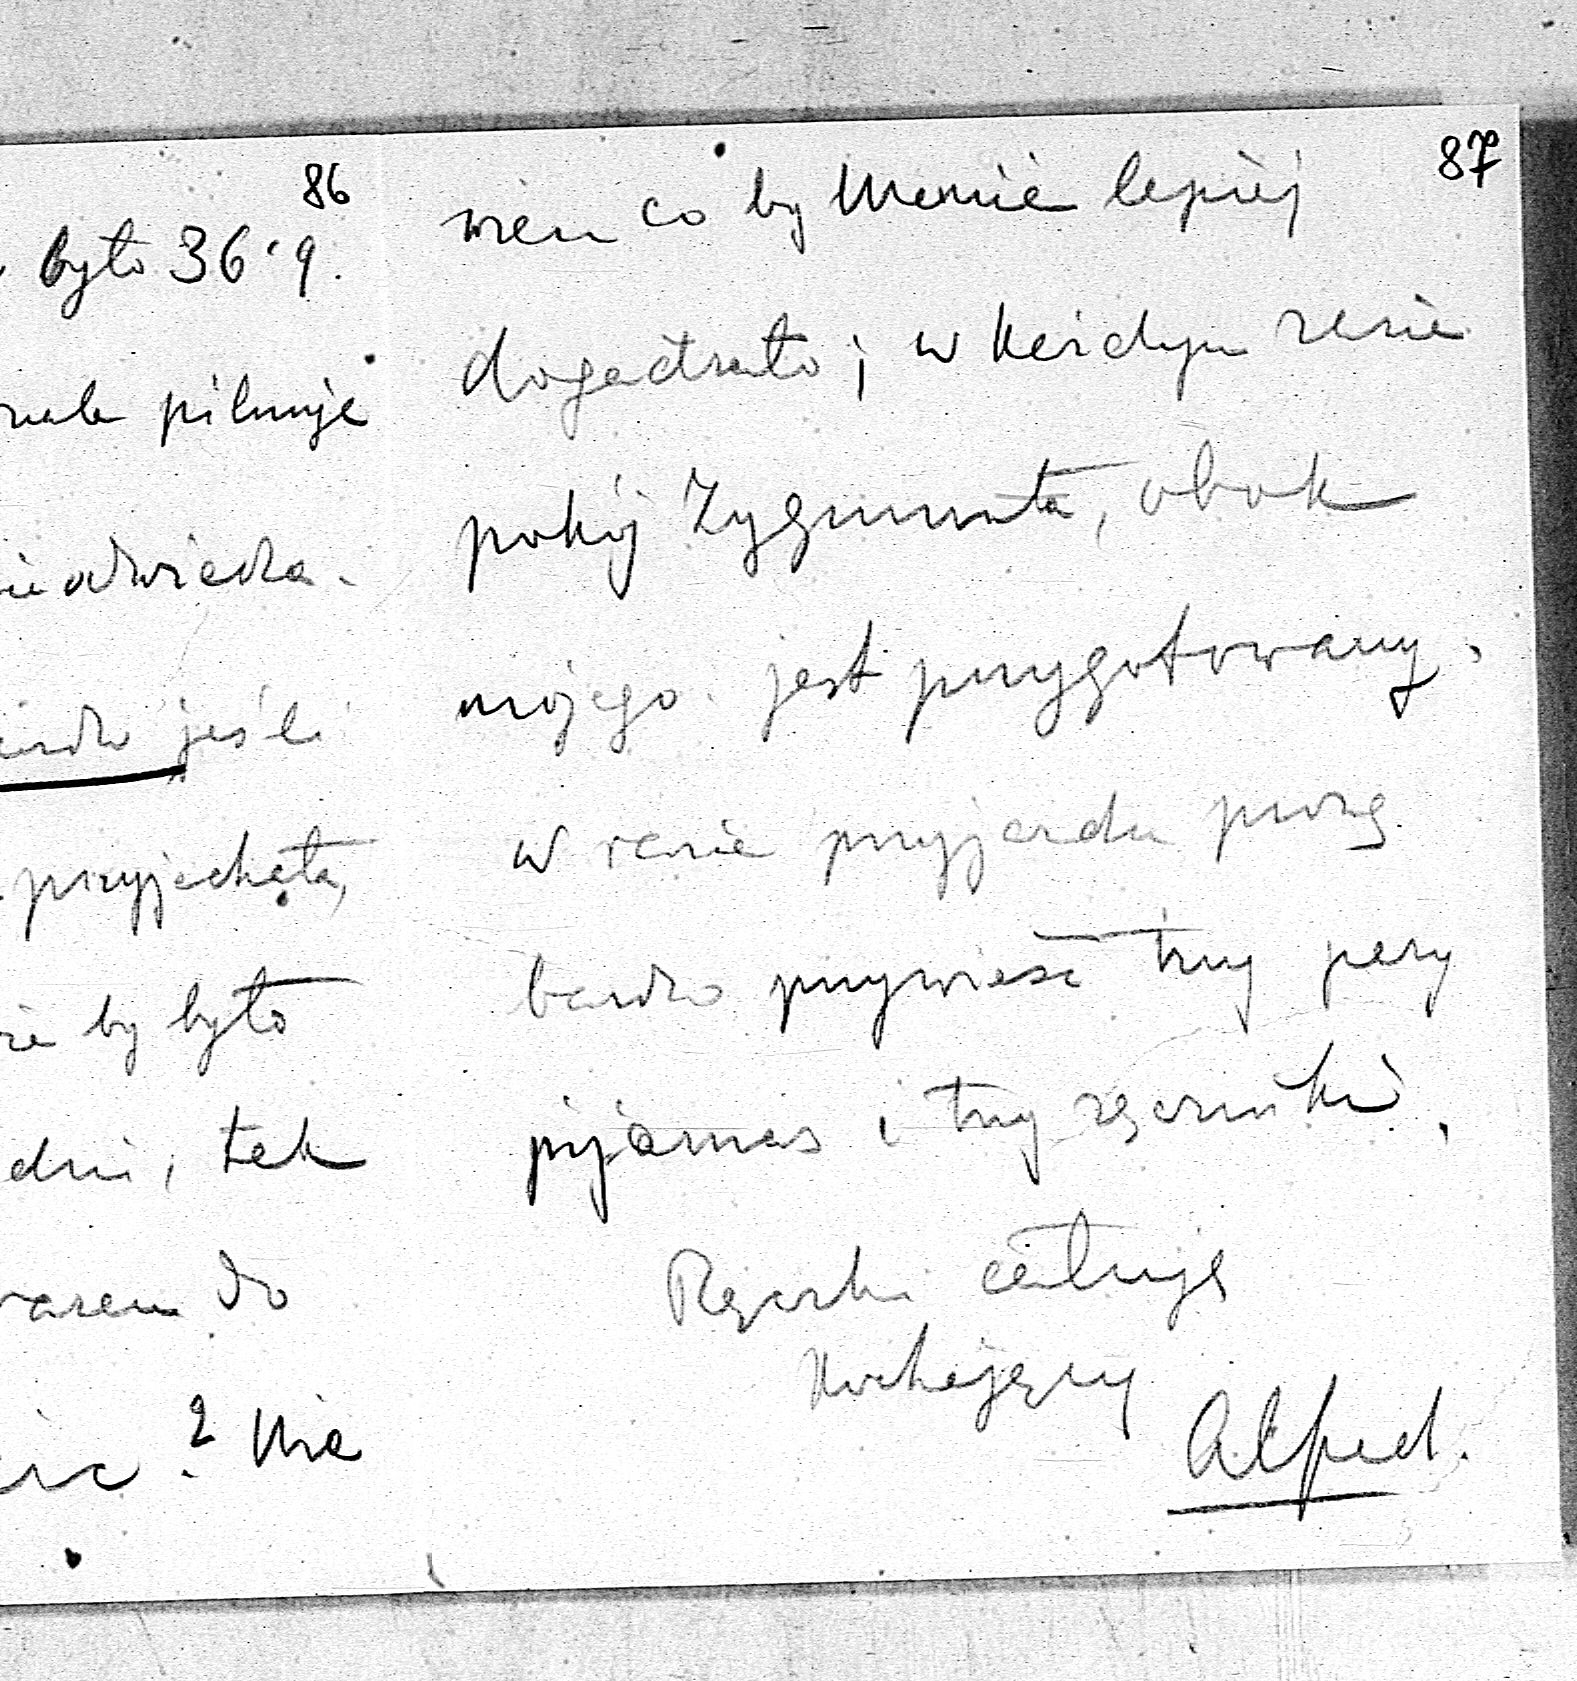 86
było 36·9.
pilnuje
jeśli
przyjechała,
by było
dni, tak
do
? Nie
87
wiem co by Mamie lepiej
dogadzało; w każdym razie
pokój Zygmunta, obok
mojego jest przygotowany.
W razie przyjazdu proszę
bardzo przywieść trzy pary
pijamas i trzy ręczniki.
Rączki całuję
Kochający
Alfred.